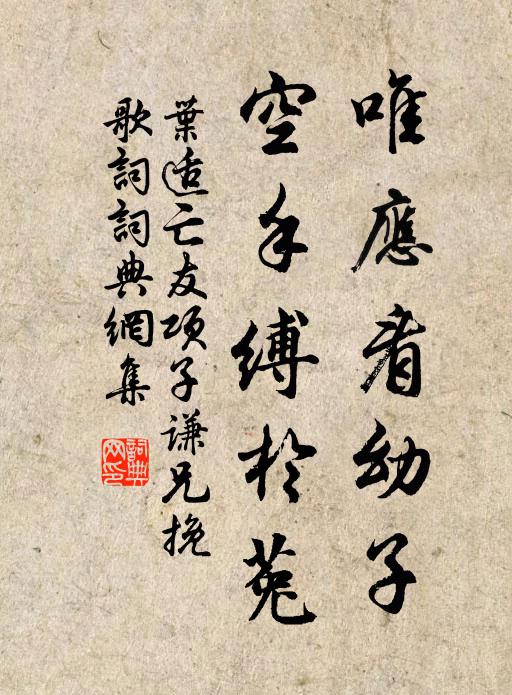 唯應看幼子
空手縛於菟
葉适亡友項子謙兄挽
歌詞詞典網集
詞典網印